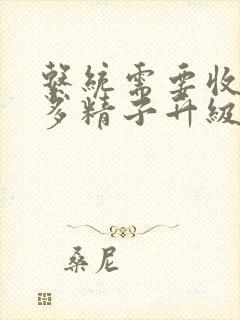 繫統需要收
多精子升級
桑尼